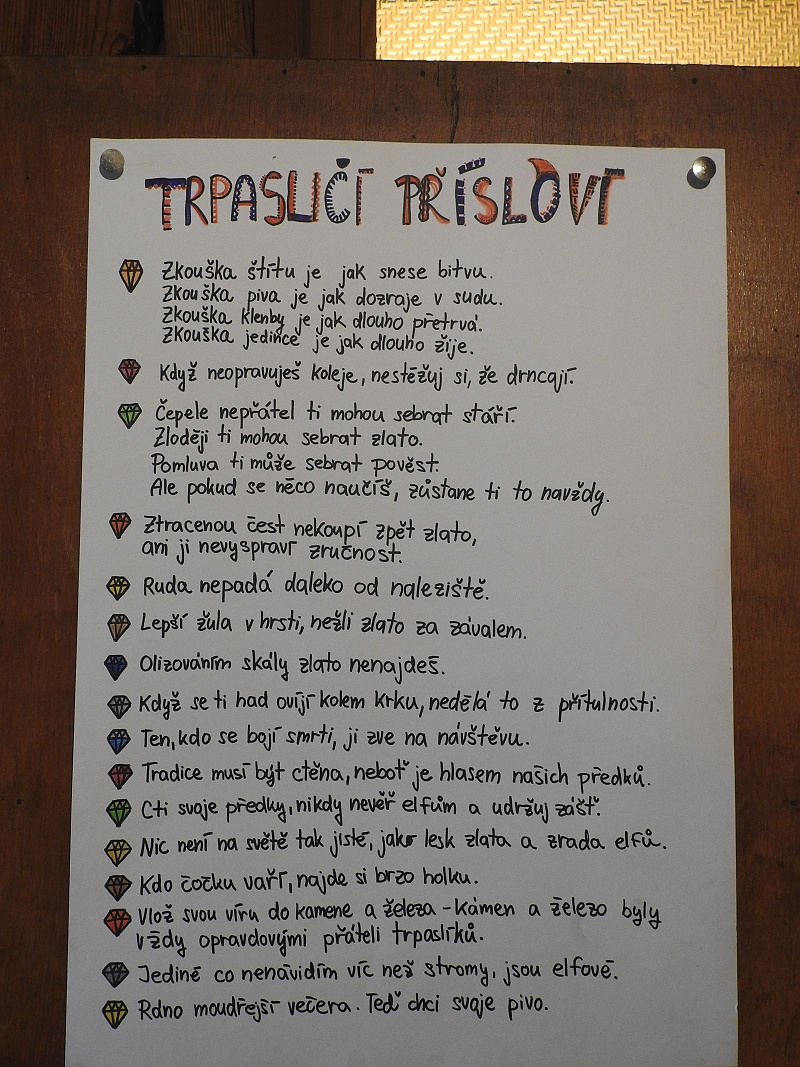 TRPASLIČÍ PŘÍSLOVÍ
Zkouška štítu je jak snese bitvu.
Zkouška piva je jak dozraje v sudu.
Zkouška klenby je jak dlouho přetrvá.
Zkouška jedince je jak dlouho žije.
Když neopravuješ koleje, nestěžuj si, že drncají.
Čepele nepřátel ti mohou sebrat stáří.
Zloději ti mohou sebrat zlato.
Pomluva ti může sebrat pověst.
Ale pokud se něco naučíš, zůstane ti to navždy.
Ztracenou čest nekoupí zpět zlato,
ani ji nevyspraví zručnost.
Ruda nepadá daleko od naleziště.
Lepší žula v hrsti, nežli zlato za závalem.
Olizováním skály zlato nenajdeš.
Když se ti had ovíjí kolem krku, nedělá to z přítulnosti.
Ten, kdo se bojí smrti, ji zve na návštěvu.
Tradice musí být ctěna, neboť je hlasem našich předků.
Cti svoje předky, nikdy nevěř elfům a udržuj zášť.
Nic není na světě tak jisté, jako lesk zlata a zrada elfů.
Kdo čočku vaří, najde si brzo holku.
Vlož svou víru do kamene a železa - Kámen a železo byly
vždy opravdovými přáteli trpaslíků.
Jediné co nenávidím víc než stromy, jsou elfové.
Ráno moudřejší večera. Teď chci svoje pivo.